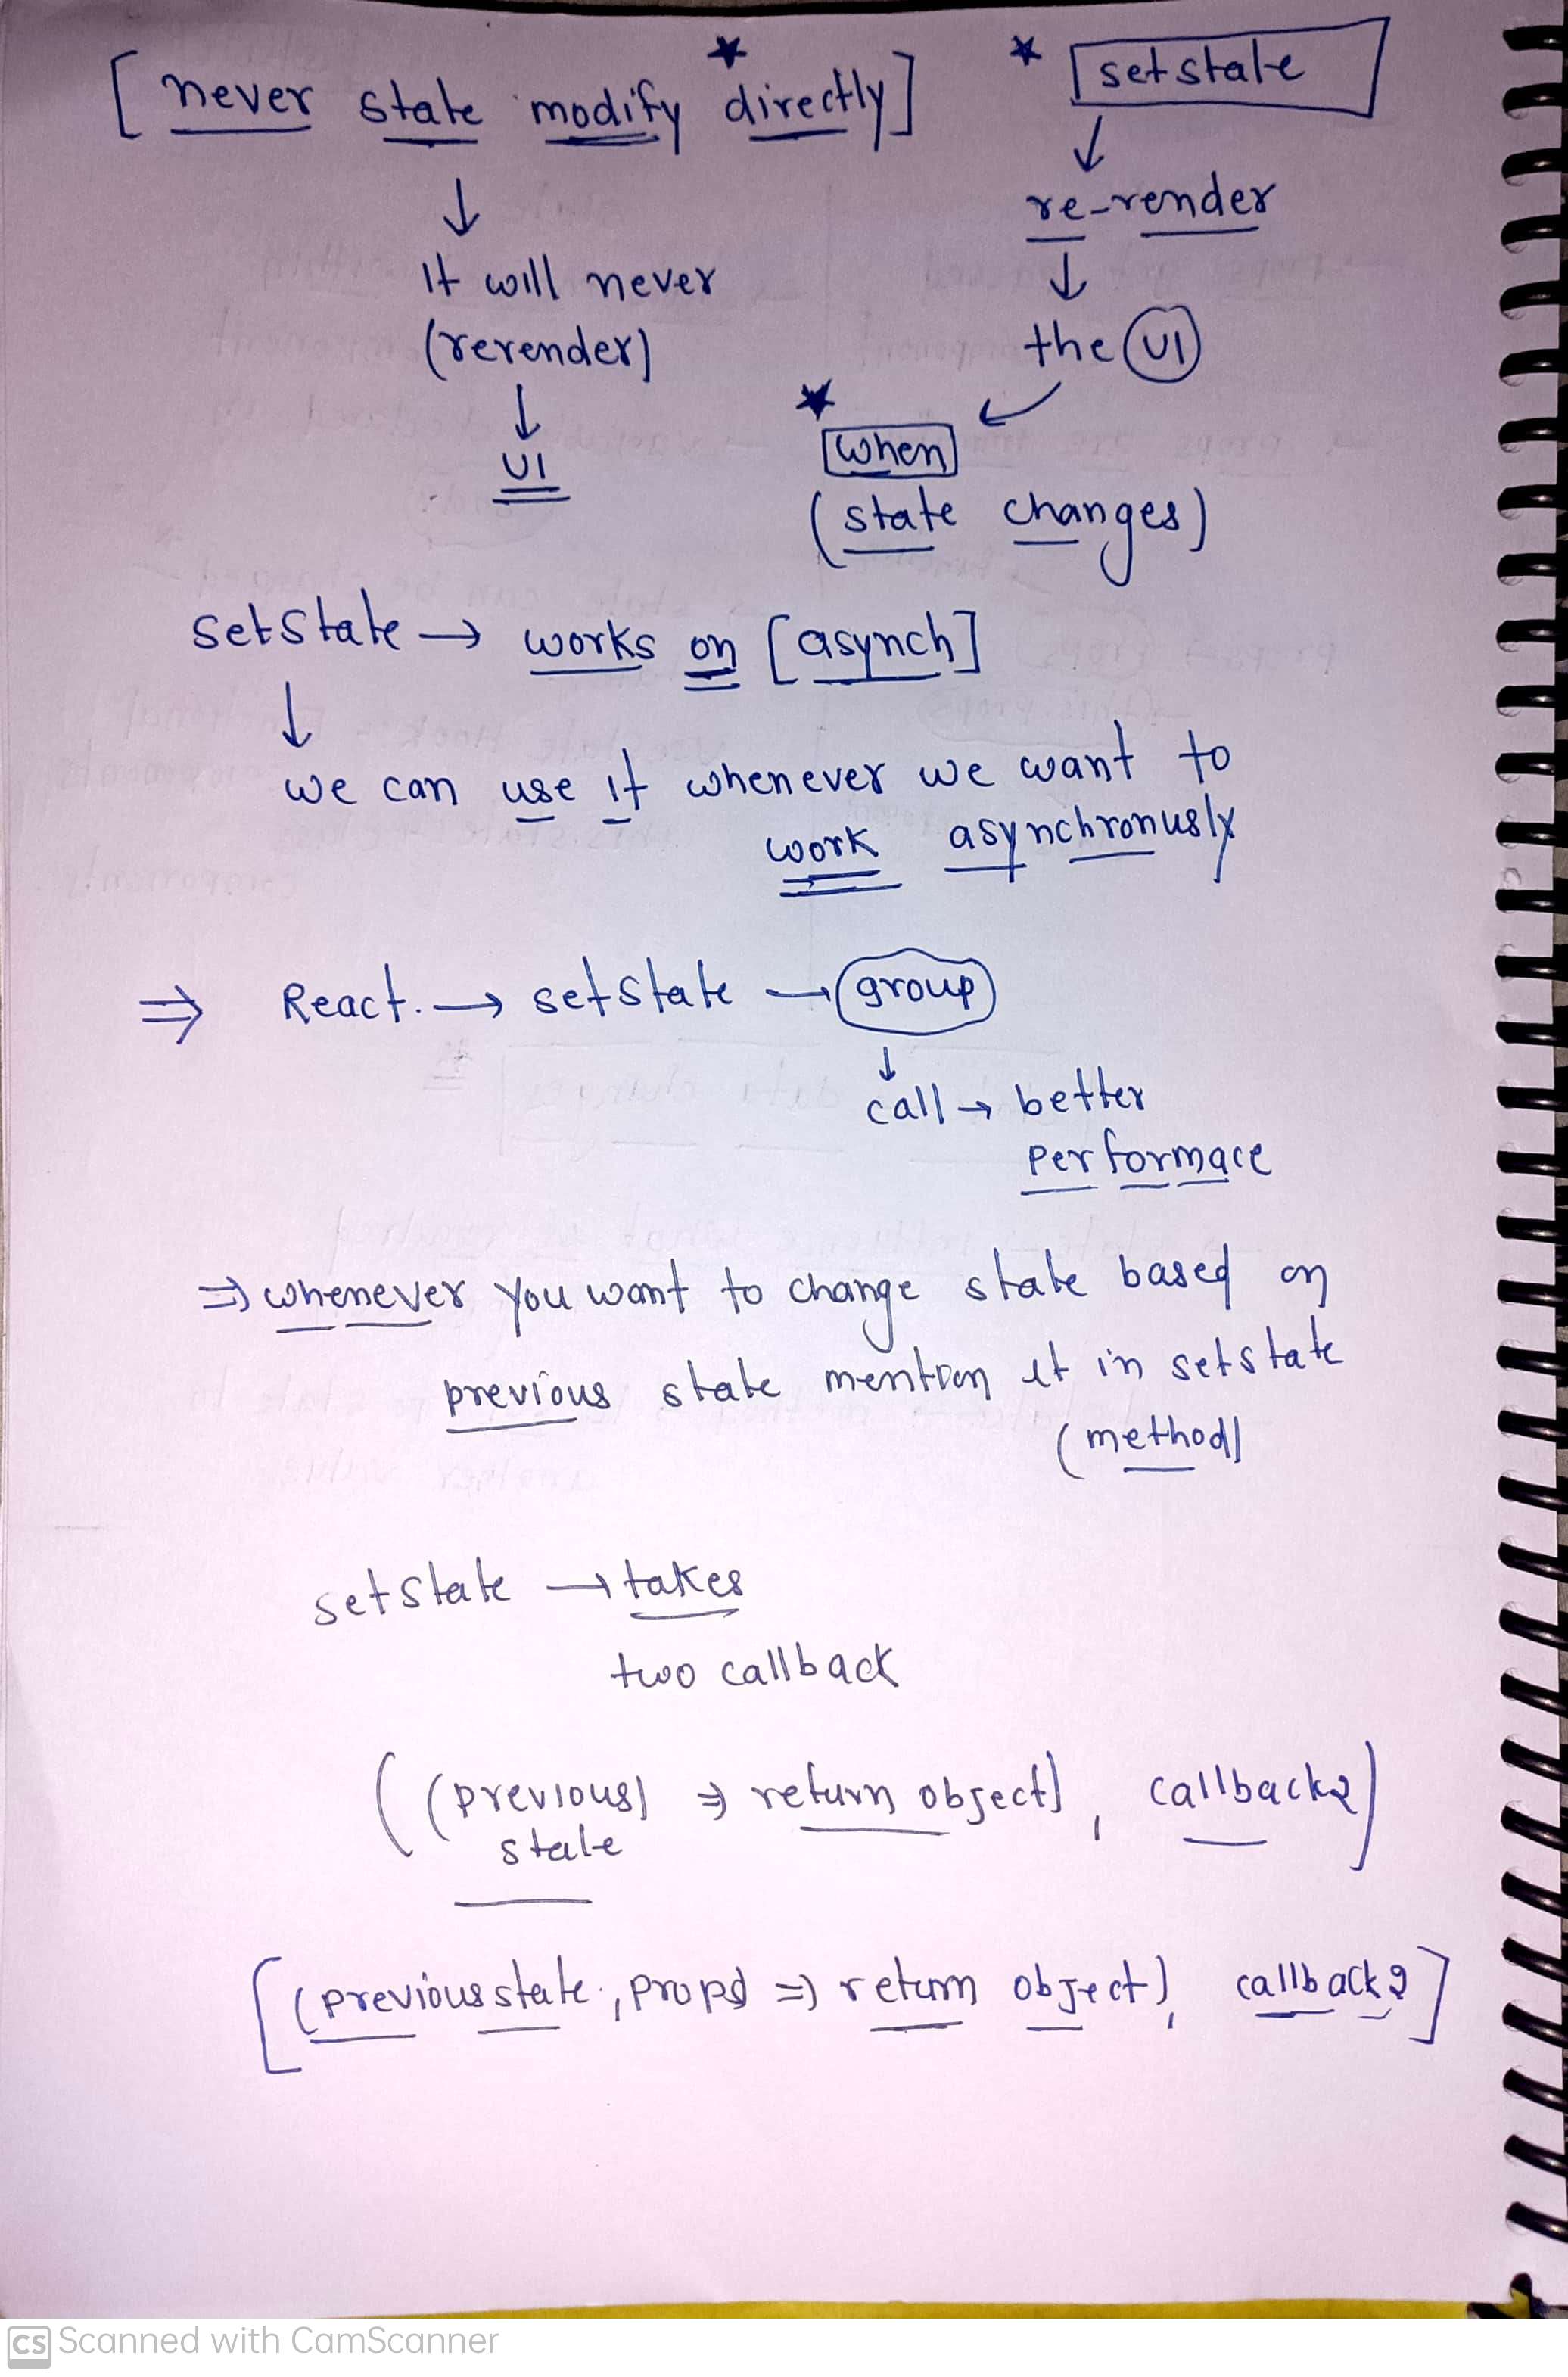 [never state modify directly]
↓
It will never
(rerender)
↓
UI
* setstate
↓
re-render
↓
the UI
when
(state changes)
setstate → works on [asynch]
↓
we can use it whenever we want to
work asynchronusly
⇒ React. → setstate → group
↓
call → better
performace
⇒ whenever you want to change state based on
previous state mention it in setstate
(method)
setstate → takes
two callback
((previous) ⇒ return object), callback2)
state
[(previousstate, props ⇒ return object), callback2]
CS Scanned with CamScanner